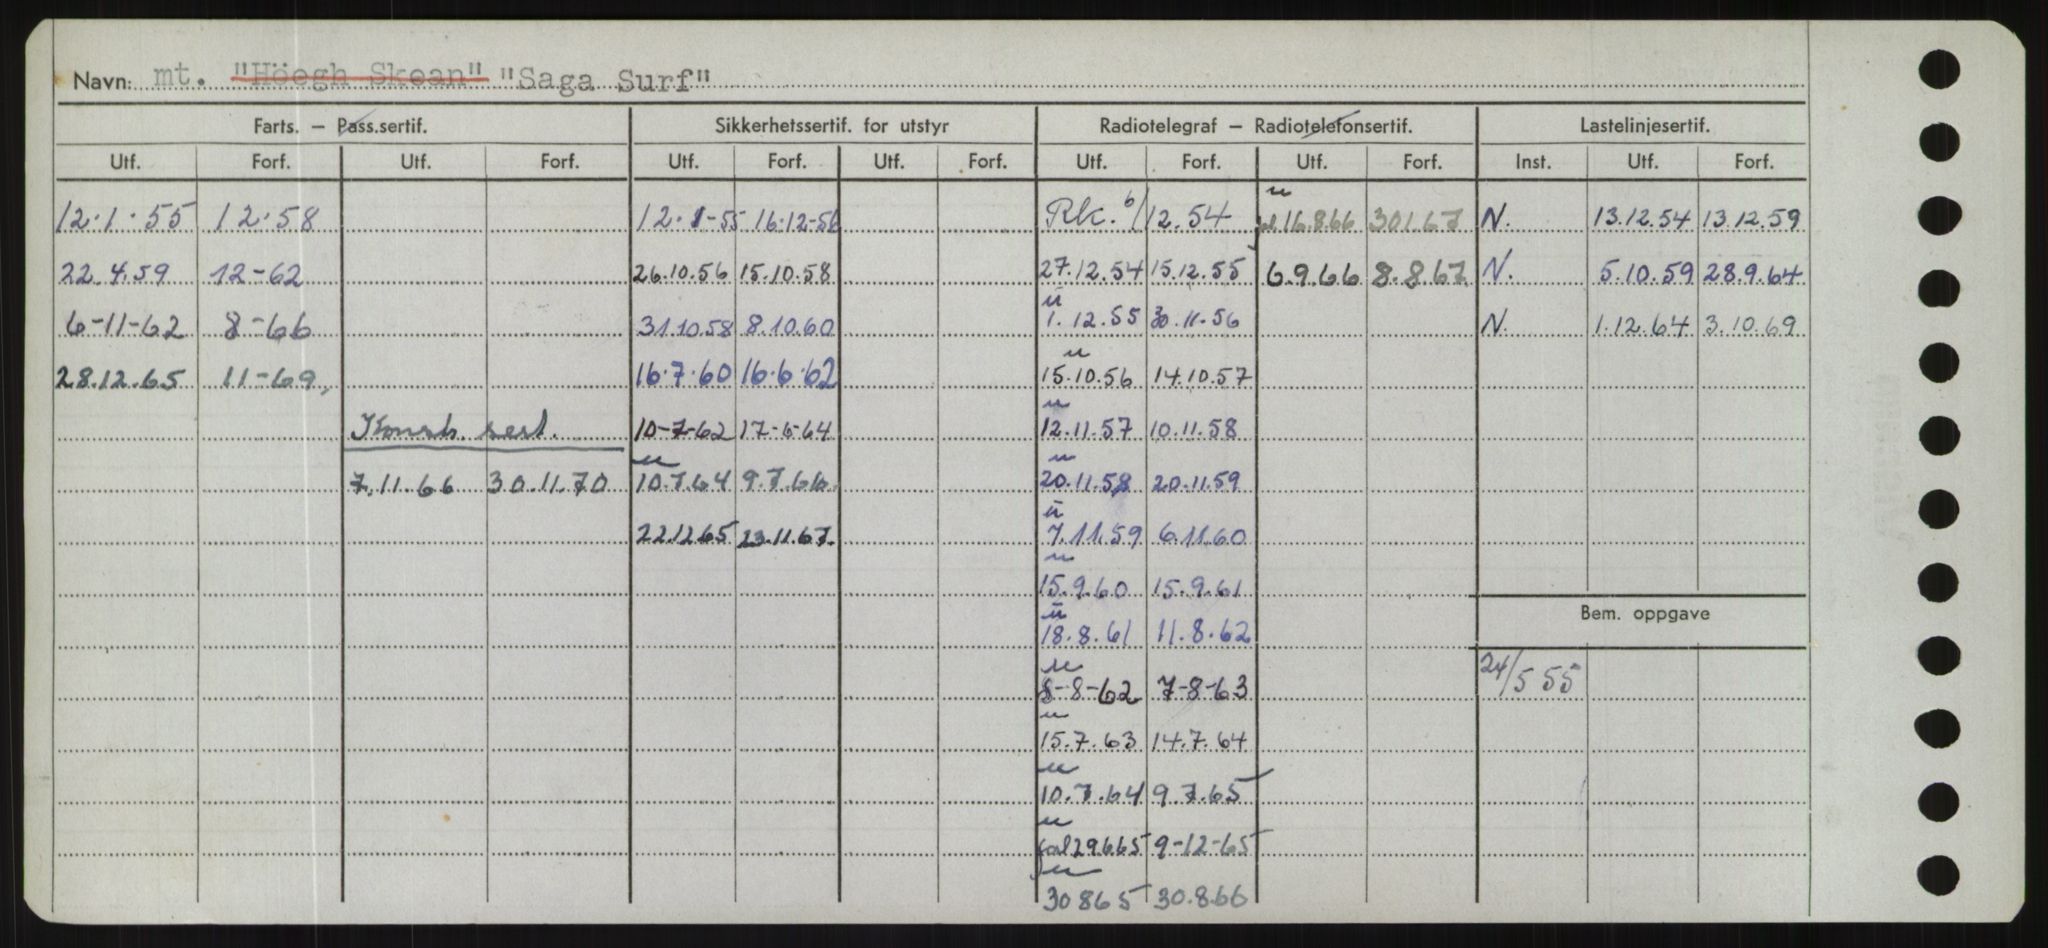 Navn: mt. "Höegh Skean" "Saga Surf"
Farts. — Pass.sertif. Sikkerhetssertif. for utstyr Radiotelegraf — Radiotelefonsertif. Lastelinjesertif.
Utf. Forf. Utf. Forf. Utf. Forf. Utf. Forf. Utf. Forf. Utf. Forf. Inst. Utf. Forf.
12.1.55 12.58 12.1-55 16.12-56 Rk. 6/12.54 16.8.66 30.1.67 N. 13.12.54 13.12.59
22.4.59 12-62 26.10.56 15.10.58 27.12.54 15.12.55 6.9.66 8.8.67 N. 5.10.59 28.9.64
6-11-62 8-66 31.10.58 8.10.60 1.12.55 30.11.56 N. 1.12.64 3.10.69
28.12.65 11-69, 16.7.60 16.6.62 15.10.56 14.10.57
Konstr. sert. 10-7-62 17-6-64 12.11.57 10.11.58
7.11.66 30.11.70 10.7.64 9.7.66. 20.11.58 20.11.59
22.12.65 23.11.67. 7.11.59 6.11.60
15.9.60 15.9.61
Bem. oppgave
18.8.61 11.8.62
8-8-62 7-8-63 24/5 55
15.7.63 14.7.64
10.7.64 9.7.65
29.6.65 9-12-65
30.8.65 30.8.66